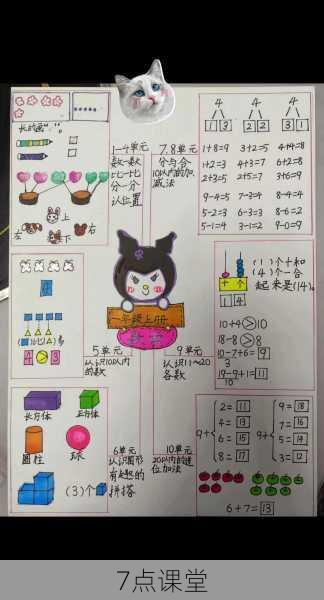 长的画"√"。
左
上
右
下
1-4单元
数一数
比一比
分一分
认位置
7.8单元
分与合
10以内的加、
减法
4 4 4
1 3 2 2 3 1
1+8=9 3+2=5 4+4=8
1+2=3 4+3=7 6+2=8
2+3=5 2+5=7 3+6=9
9-4=5 7-3=4 8-4=4
5-2=3 6-3=3 8-6=2
5-1=4 3-1=2 9-0=9
一年级上册
数学
4
4 3
5单元
认识10以内
的数
9单元
认识11~20
各数
十 个
1 4
(1)个十和
(4)个一合
起来是(14)。
10+4>10
18-8>8
10-7+6=9
3
19-9+1=11
10
长方体
正方体
圆柱
球
(3)个
6单元
认识图形
有趣的
拼搭
10单元
20以内的进
位加法
9+
2=11
4=13
6=15
8=17
9+
9=18
7=16
5=14
3=12
6+7=13
7点课堂